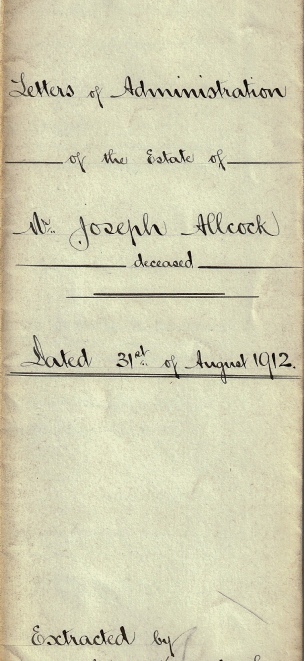 Letters of Administration
of the Estate of
Mr. Joseph Allcock
deceased
Dated 31st of August 1912.
Extracted by